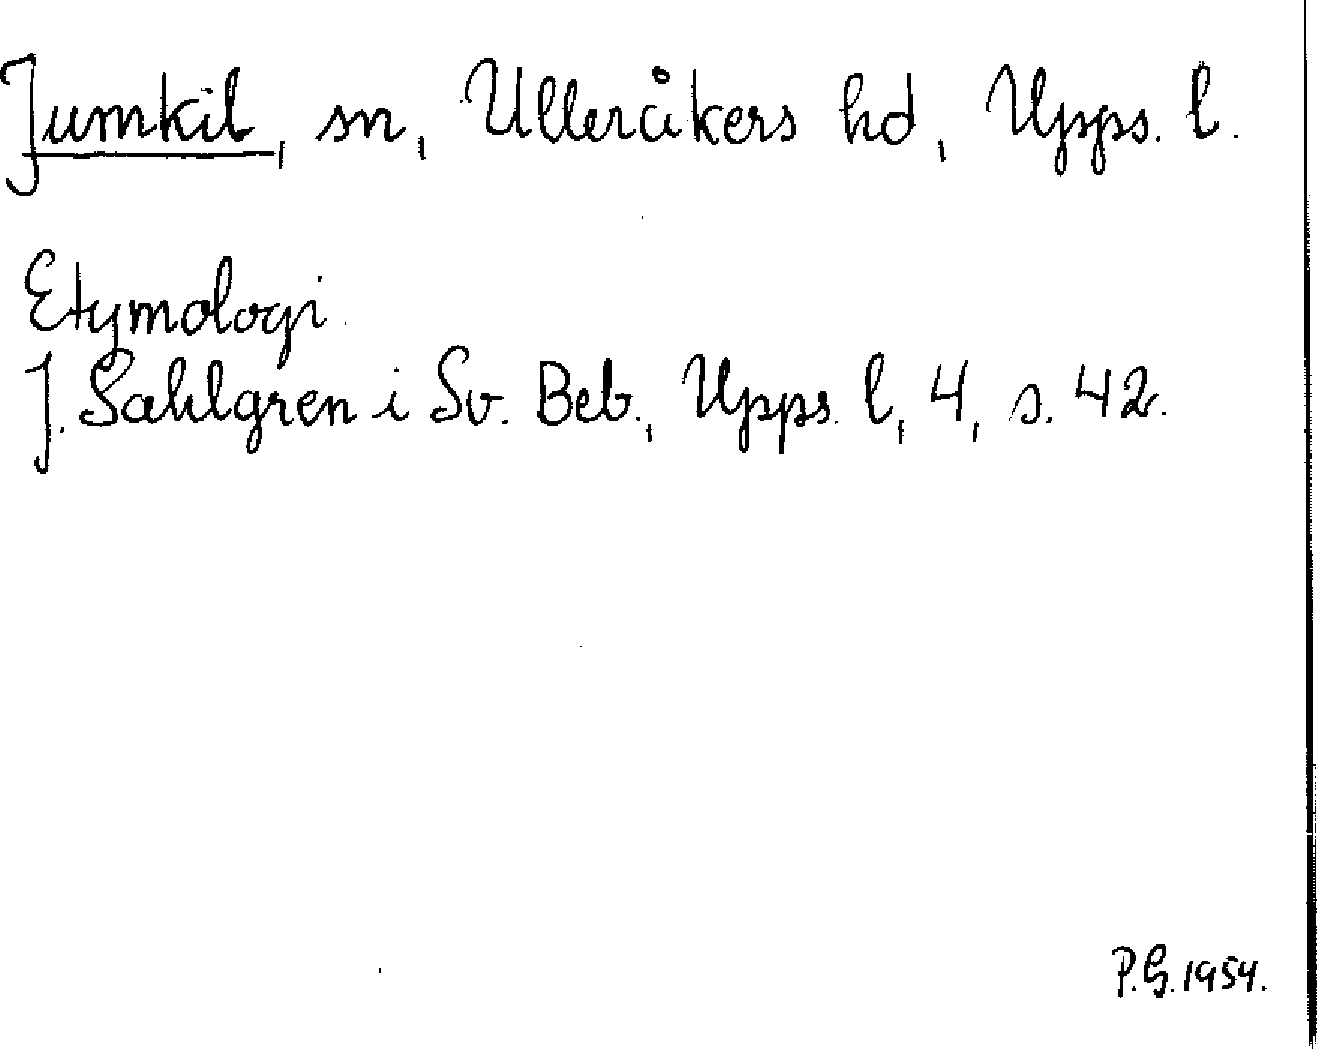 Jumkil, sn, Ulleråkers hd, Upps. l.
Etymologi.
J. Sahlgren i Sv. Beb., Upps. l, 4, s. 42.
P.G. 1954.